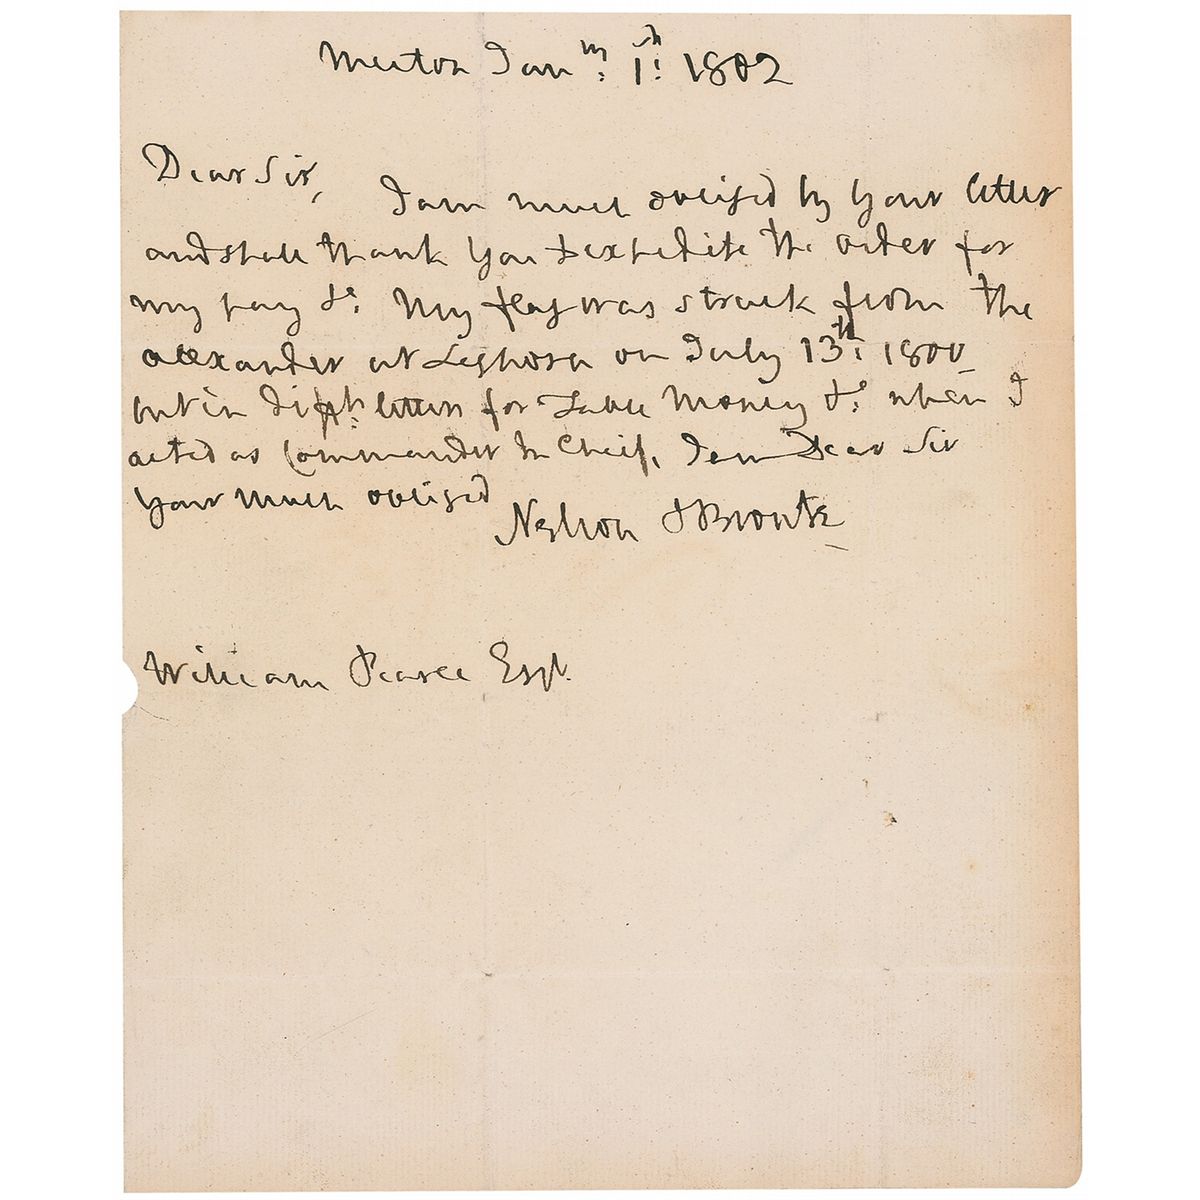 Merton Jany: 1st: 1802
Dear Sir,
I am much obliged by your letter
and shall thank you to expedite the order for
my pay &c: My flag was struck from the
Alexander at Leghorn on July 13th: 1800
but in letters for Table Money &c: when I
acted as Commander In Chief, I am Dear Sir
your much obliged
Nelson & Bronte
William Pearce Esqr.